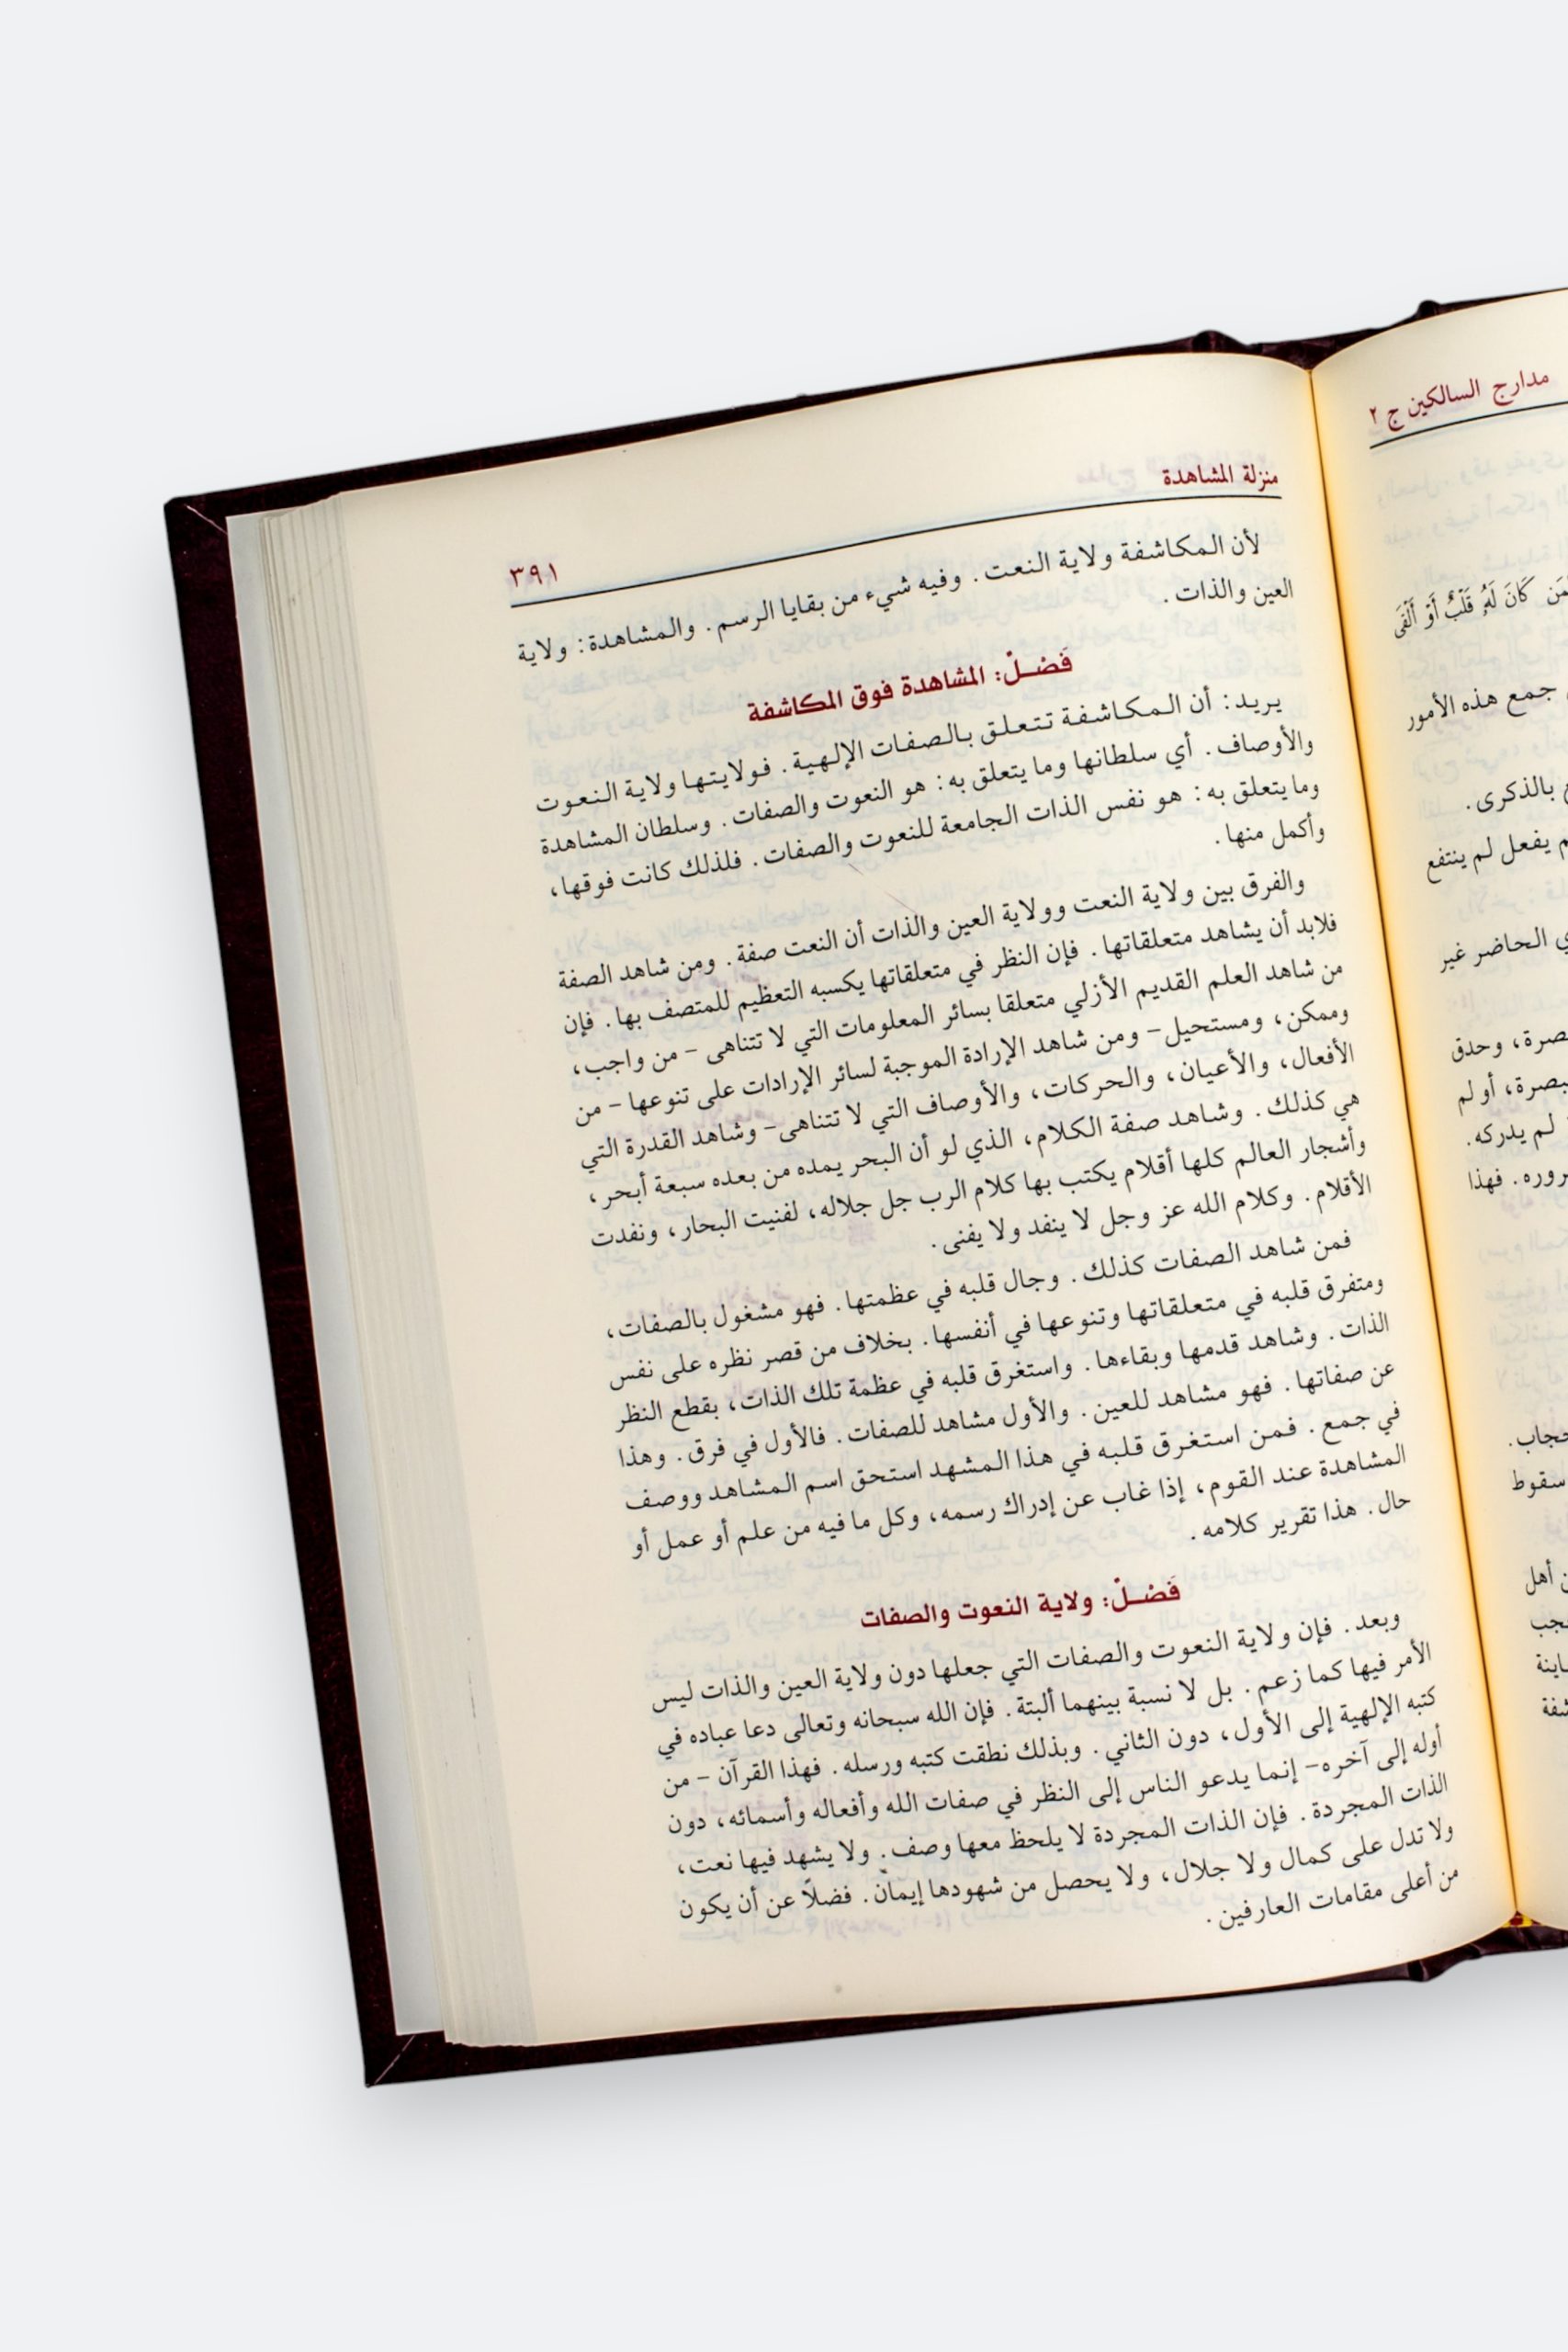 مدارج السالكين ج ٢
كَانَ لَهُۥ قَلْبٌ أَوْ أَلْقَى
جمع هذه الأمور
بالذكرى.
يفعل لم ينتفع
الحاضر غير
وحدق
أو لم
لم يدركه.
فهذا
سقوط
أهل
منزلة المشاهدة ٣٩١
لأن المكاشفة ولاية النعت. وفيه شيء من بقايا الرسم. والمشاهدة: ولاية
العين والذات.
فَصْلٌ: المشاهدة فوق المكاشفة
يريد: أن المكاشفة تتعلق بالصفات الإلهية. فولايتها ولاية النعوت
والأوصاف. أي سلطانها وما يتعلق به: هو النعوت والصفات. وسلطان المشاهدة
وما يتعلق به: هو نفس الذات الجامعة للنعوت والصفات. فلذلك كانت فوقها،
وأكمل منها.
والفرق بين ولاية النعت وولاية العين والذات أن النعت صفة. ومن شاهد الصفة
فلابد أن يشاهد متعلقاتها. فإن النظر في متعلقاتها يكسبه التعظيم للمتصف بها. فإن
من شاهد العلم القديم الأزلي متعلقا بسائر المعلومات التي لا تتناهى - من واجب،
وممكن، ومستحيل- ومن شاهد الإرادة الموجبة لسائر الإرادات على تنوعها - من
الأفعال، والأعيان، والحركات، والأوصاف التي لا تتناهى- وشاهد القدرة التي
هي كذلك. وشاهد صفة الكلام، الذي لو أن البحر يمده من بعده سبعة أبحر،
وأشجار العالم كلها أقلام يكتب بها كلام الرب جل جلاله، لفنيت البحار، ونفدت
الأقلام. وكلام الله عز وجل لا ينفد ولا يفنى.
فمن شاهد الصفات كذلك. وجال قلبه في عظمتها. فهو مشغول بالصفات،
ومتفرق قلبه في متعلقاتها وتنوعها في أنفسها. بخلاف من قصر نظره على نفس
الذات. وشاهد قدمها وبقاءها. واستغرق قلبه في عظمة تلك الذات، بقطع النظر
عن صفاتها. فهو مشاهد للعين. والأول مشاهد للصفات. فالأول في فرق. وهذا
في جمع. فمن استغرق قلبه في هذا المشهد استحق اسم المشاهد ووصف
المشاهدة عند القوم، إذا غاب عن إدراك رسمه، وكل ما فيه من علم أو عمل أو
حال. هذا تقرير كلامه.
فَصْلٌ: ولاية النعوت والصفات
وبعد. فإن ولاية النعوت والصفات التي جعلها دون ولاية العين والذات ليس
الأمر فيها كما زعم. بل لا نسبة بينهما ألبتة. فإن الله سبحانه وتعالى دعا عباده في
كتبه الإلهية إلى الأول، دون الثاني. وبذلك نطقت كتبه ورسله. فهذا القرآن - من
أوله إلى آخره- إنما يدعو الناس إلى النظر في صفات الله وأفعاله وأسمائه، دون
الذات المجردة. فإن الذات المجردة لا يلحظ معها وصف. ولا يشهد فيها نعت،
ولا تدل على كمال ولا جلال، ولا يحصل من شهودها إيمان. فضلًا عن أن يكون
من أعلى مقامات العارفين.